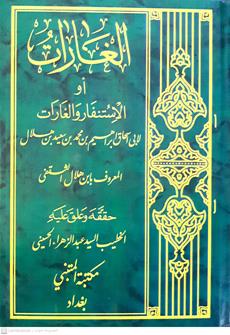 الغارات
أو
الاستنفار والغارات
لأبي إسحاق إبراهيم بن محمد بن سعيد بن هلال
المعروف بابن هلال الثقفي
حققه وعلق عليه
الخطيب السيد عبد الزهراء الحسيني
مكتبة المتنبي
بغداد